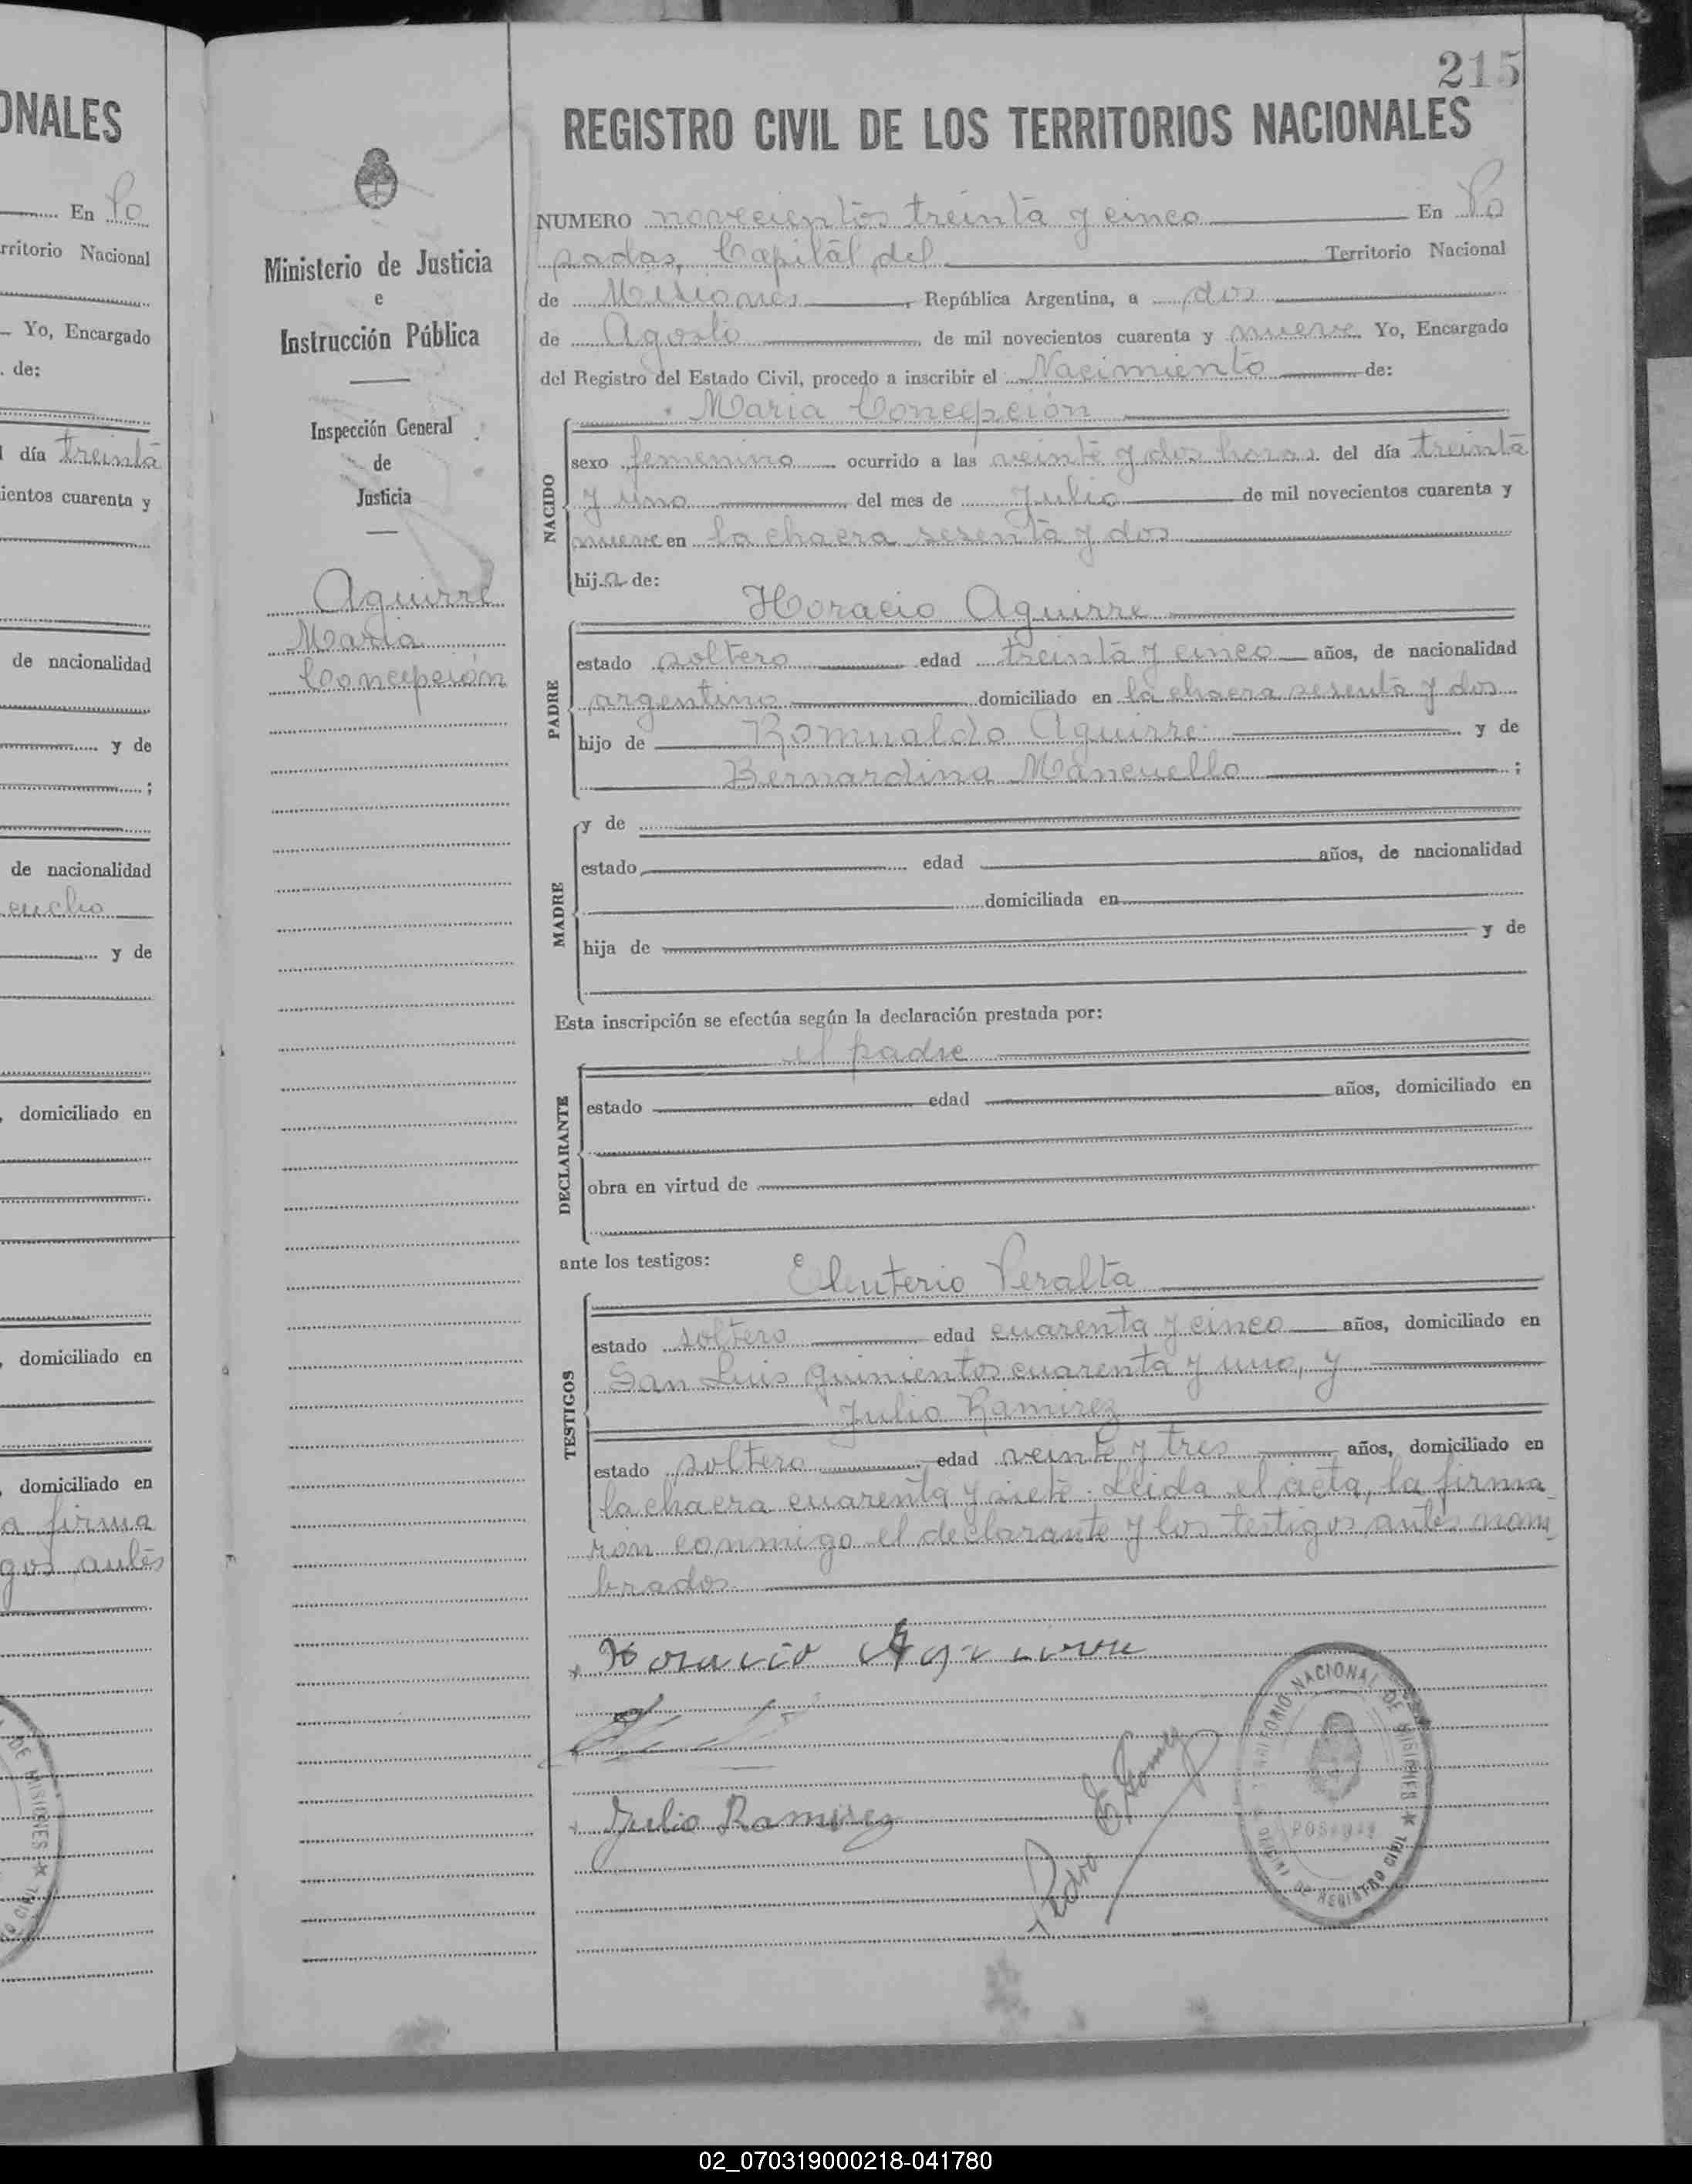 ONALES
En Po
rritorio Nacional
Yo, Encargado
de:
día treinta
ientos cuarenta y
de nacionalidad
y de
;
de nacionalidad
y de
, domiciliado en
, domiciliado en
, domiciliado en
a firma
gos antes
DE MISIONES ★
CIVIL
Ministerio de Justicia
e
Instrucción Pública
Inspección General
de
Justicia
Aguirre
Maria
Concepción
215
REGISTRO CIVIL DE LOS TERRITORIOS NACIONALES
NUMERO novecientos treinta y cinco En Po
sadas, Capital del Territorio Nacional
de Misiones, República Argentina, a dos
de Agosto de mil novecientos cuarenta y nueve Yo, Encargado
del Registro del Estado Civil, procedo a inscribir el Nacimiento de:
Maria Concepción
NACIDO
sexo femenino ocurrido a las veinte y dos horas del día treinta
y uno del mes de Julio de mil novecientos cuarenta y
nueve en la chacra sesenta y dos
hija de:
Horacio Aguirre
PADRE
estado soltero edad treinta y cinco años, de nacionalidad
argentino domiciliado en la chacra sesenta y dos
hijo de Romualdo Aguirre y de
Bernardina Mancuello ;
MADRE
y de
estado edad años, de nacionalidad
domiciliada en
hija de y de
Esta inscripción se efectúa según la declaración prestada por:
el padre
DECLARANTE
estado edad años, domiciliado en
obra en virtud de
ante los testigos:
Eleuterio Peralta
TESTIGOS
estado soltero edad cuarenta y cinco años, domiciliado en
San Luis quinientos cuarenta y uno, y
Julio Ramirez
estado soltero edad veinte y tres años, domiciliado en
la chacra cuarenta y siete. Leida el acta, la firma
ron conmigo el declarante y los testigos antes nom
brados.
Horacio Aguirre
Julio Ramirez
Pedro E. Gomez
TERRITORIO NACIONAL DE MISIONES ★
POSADAS
OFICINA DE REGISTRO CIVIL
02_070319000218-041780